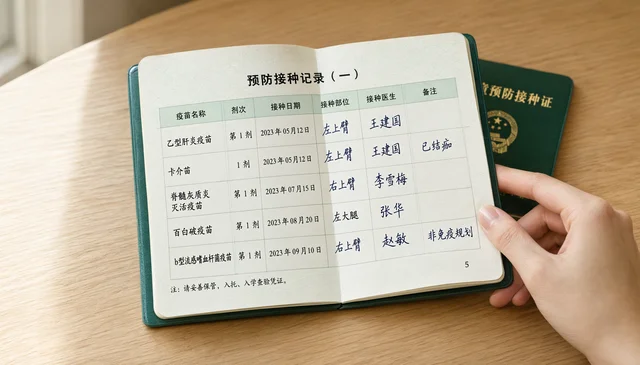 预防接种记录（一）
疫苗名称 剂次 接种日期 接种部位 接种医生 备注
乙型肝炎疫苗 第 1 剂 2023年05月12日 左上臂 王建国
卡介苗 1 剂 2023年05月12日 左上臂 王建国 已结痂
脊髓灰质炎
灭活疫苗 第 1 剂 2023年07月15日 右上臂 李雪梅
百白破疫苗 第 1 剂 2023年08月20日 左大腿 张华
b型流感嗜血杆菌疫苗 第 1 剂 2023年09月10日 右上臂 赵敏 非免疫规划
注：请妥善保管，入托、入学查验凭证。
5
预防接种证